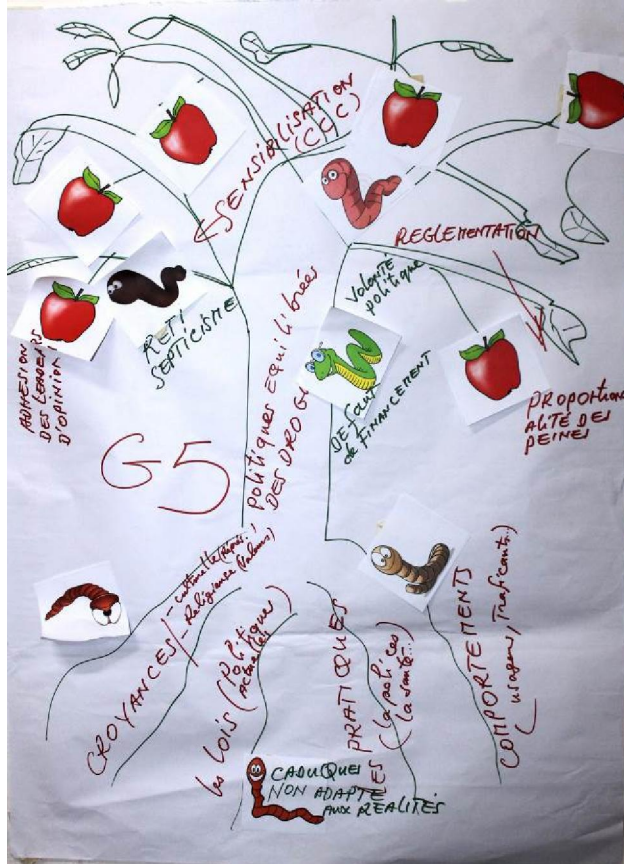 SENSIBILISATION
(CCC)
REGLEMENTATION
Volonté
politique
ADHESION
DES LEADERS
D'OPINION
RETI
SEPTICISME
Politiques equilibrées
DES DROG
Defaut
de FINANCEMENT
PROPORTION
ALITÉ DES
PEINES
G5
CROYANCES
- culturelle
- Religieuse (Valeurs)
les Lois (Politiques
actuelles)
PRATIQUES
(la police,
la santé...)
COMPORTEMENTS
(usagers, Traficants...)
CADUQUES
NON ADAPTE
AUX REALITÉS